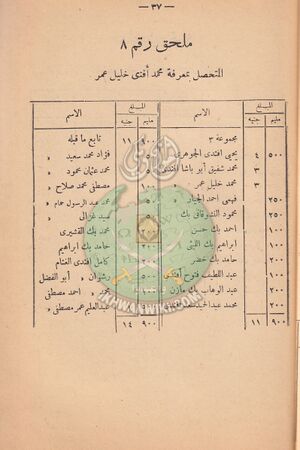 — ٣٧ —
ملحق رقم ٨
المتحصل بمعرفة محمد أفندى خليل عمر
المبلغ الاسم المبلغ الاسم
مليم جنيه مليم جنيه
مجموعة ٣ ٩٠٠ ١١ تابع ما قبله
٥٠٠ ٤ يحيى افندى الجوهرى فؤاد محمد سعيد »
٣ محمد شفيق أبو باشا أفندى محمد عثمان محمود »
٣ محمد خليل عمر » ١٠٠ مصطفى محمد صلاح »
٢٥٠ فهمى احمد الجيار » محمد عبد الرسول »
٢٥٠ محمود الشوفانى بك سيد غزالى »
١٠٠ احمد بك حسن محمد بك القشيرى
١٠٠ ابراهيم بك الليثى حامد بك ابراهيم
٢٠٠ حامد بك خضر كامل أفندى الغنام
١٠٠ عبد اللطيف فتوح أفندى ٥٠٠ رشوان » أبو الفضل
٢٠٠ عبد الوهاب بك مازن ١٠٠ محمد » احمد مصطفى
٢٠٠ محمد عبد الحميد عبد العليم عمر مصطفى »
٩٠٠ ١١ ٩٠٠ ١٤
IKHWANWIKI.COM